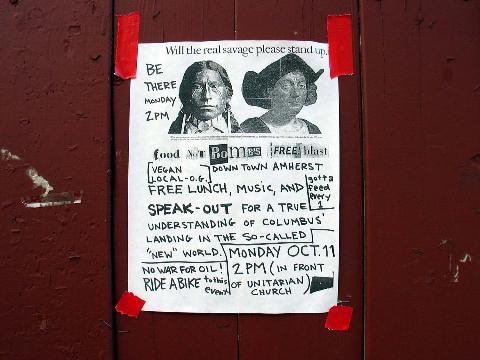 Will the real savage please stand up.
BE
THERE
MONDAY
2PM
food Not Bombs FREE blast
VEGAN
LOCAL-O.G.
DOWN TOWN AMHERST
FREE LUNCH, MUSIC, AND
gotta
feed
every
1
SPEAK-OUT FOR A TRUE
UNDERSTANDING OF COLUMBUS'
LANDING IN THE SO-CALLED
"NEW" WORLD.
MONDAY OCT. 11
2PM (IN FRONT
OF UNITARIAN)
CHURCH
NO WAR FOR OIL!
RIDE A BIKE to this
event